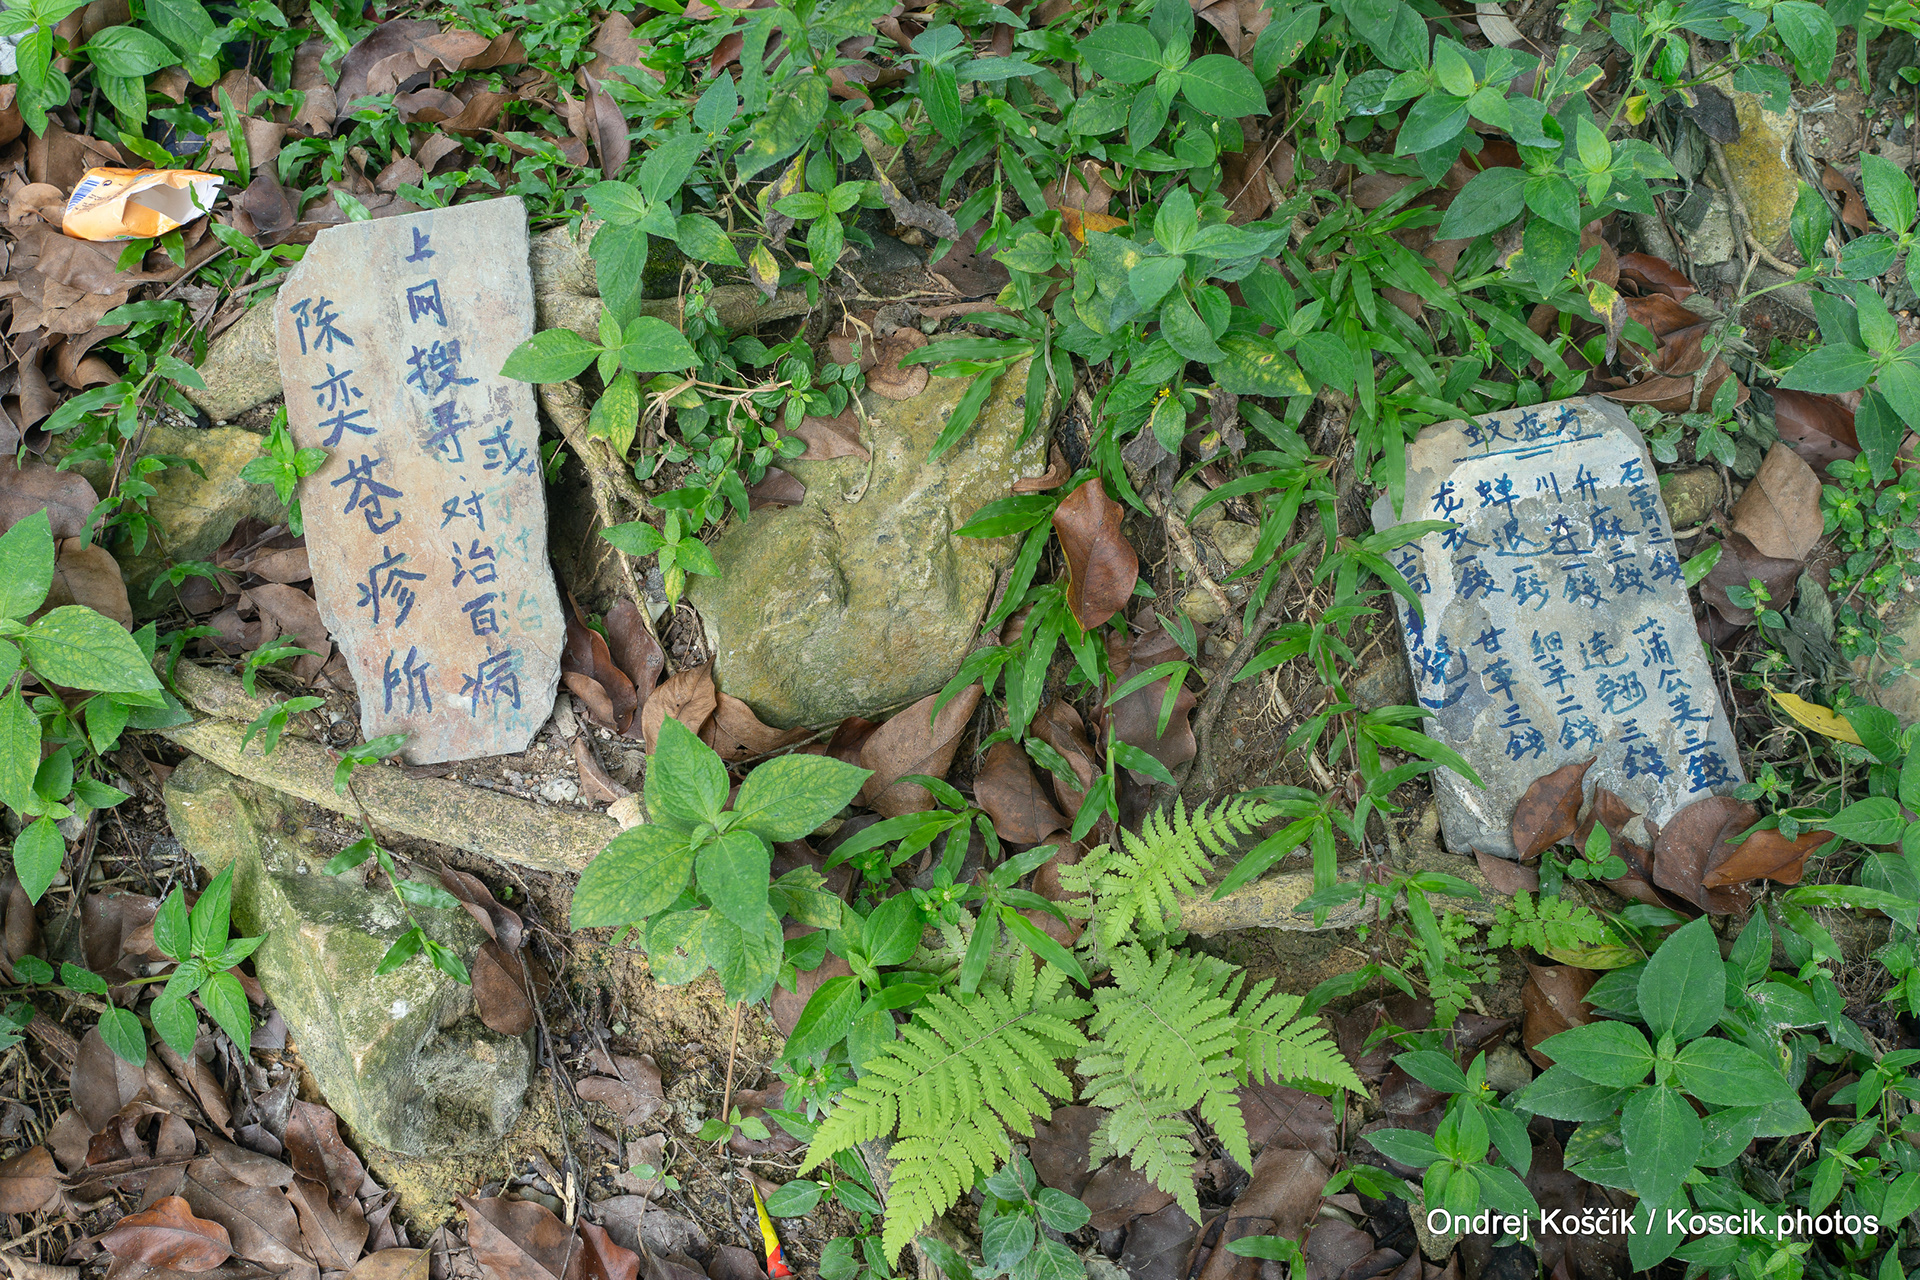 或
上网搜寻.对治百病
陈奕苍疹所
蚊症方
石膏三錢
升麻三錢
川连一錢
蝉退一錢
龙衣一錢
蒲公英三錢
连翘三錢
细辛二錢
甘草三錢
高
燒
Ondrej Koščík / Koscik.photos